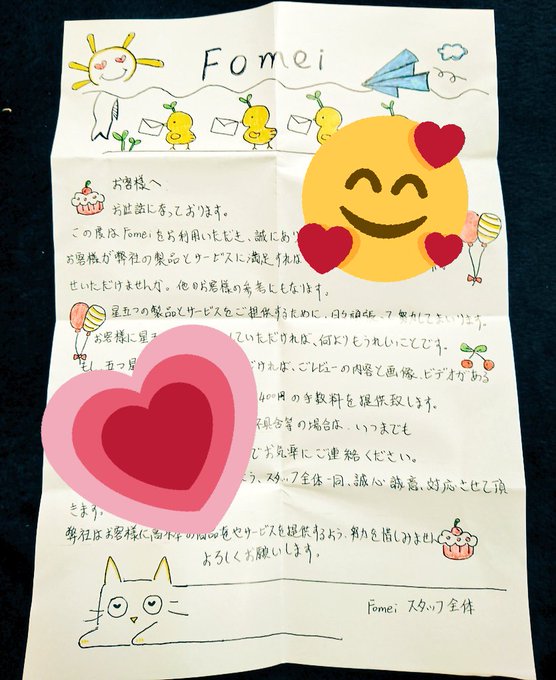 Fomei
お客様へ
お世話になっております。
この度はFomeiをお利用いただき、誠にあり
お客様が弊社の製品とサービスに満足すれば
せいただけませんか。他のお客様の参考にもなります。
星五つの製品とサービスをご提供するために、日々頑張って努力してまいります。
お客様に星五 していただければ、何よりもうれしいことです。
もし、五つ星 ければ、ごレビューの内容と画像、ビデオがある
400円の手数料を提供致します。
不具合等の場合は、いつまでも
でお気軽にご連絡ください。
よう、スタッフ全体一同、誠心誠意、対応させて頂
きます。
弊社はお客様に高水準の商品をやサービスを提供するよう、努力を惜しみません
よろしくお願いします。
Fomei スタッフ全体